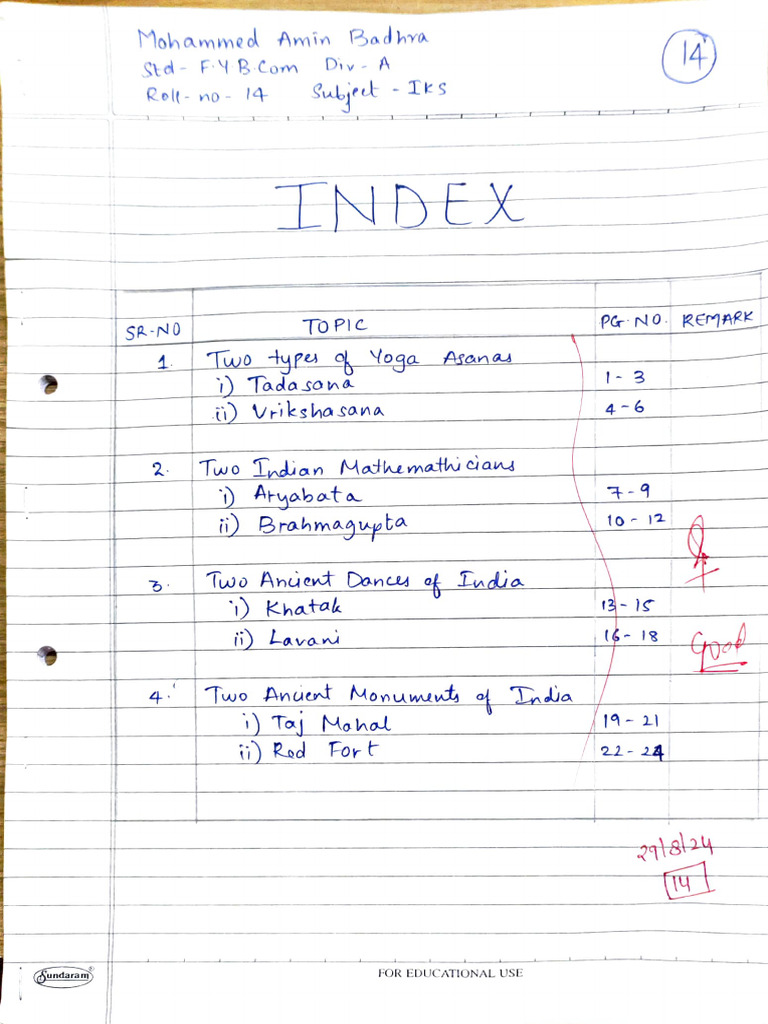 Mohammed Amin Badhra
14
Std - F.Y B.Com Div - A
Roll-no - 14 Subject - IKS
INDEX
SR-NO TOPIC PG. NO. REMARK
1. Two types of Yoga Asanas
i) Tadasana 1 - 3
ii) Vrikshasana 4 - 6
2. Two Indian Mathemathicians
i) Aryabata 7 - 9
ii) Brahmagupta 10 - 12
3. Two Ancient Dances of India
i) Khatak 13 - 15
ii) Lavani 16 - 18
Good
4. Two Ancient Monuments of India
i) Taj Mahal 19 - 21
ii) Red Fort 22 - 24
29/8/24
14
Sundaram®
FOR EDUCATIONAL USE